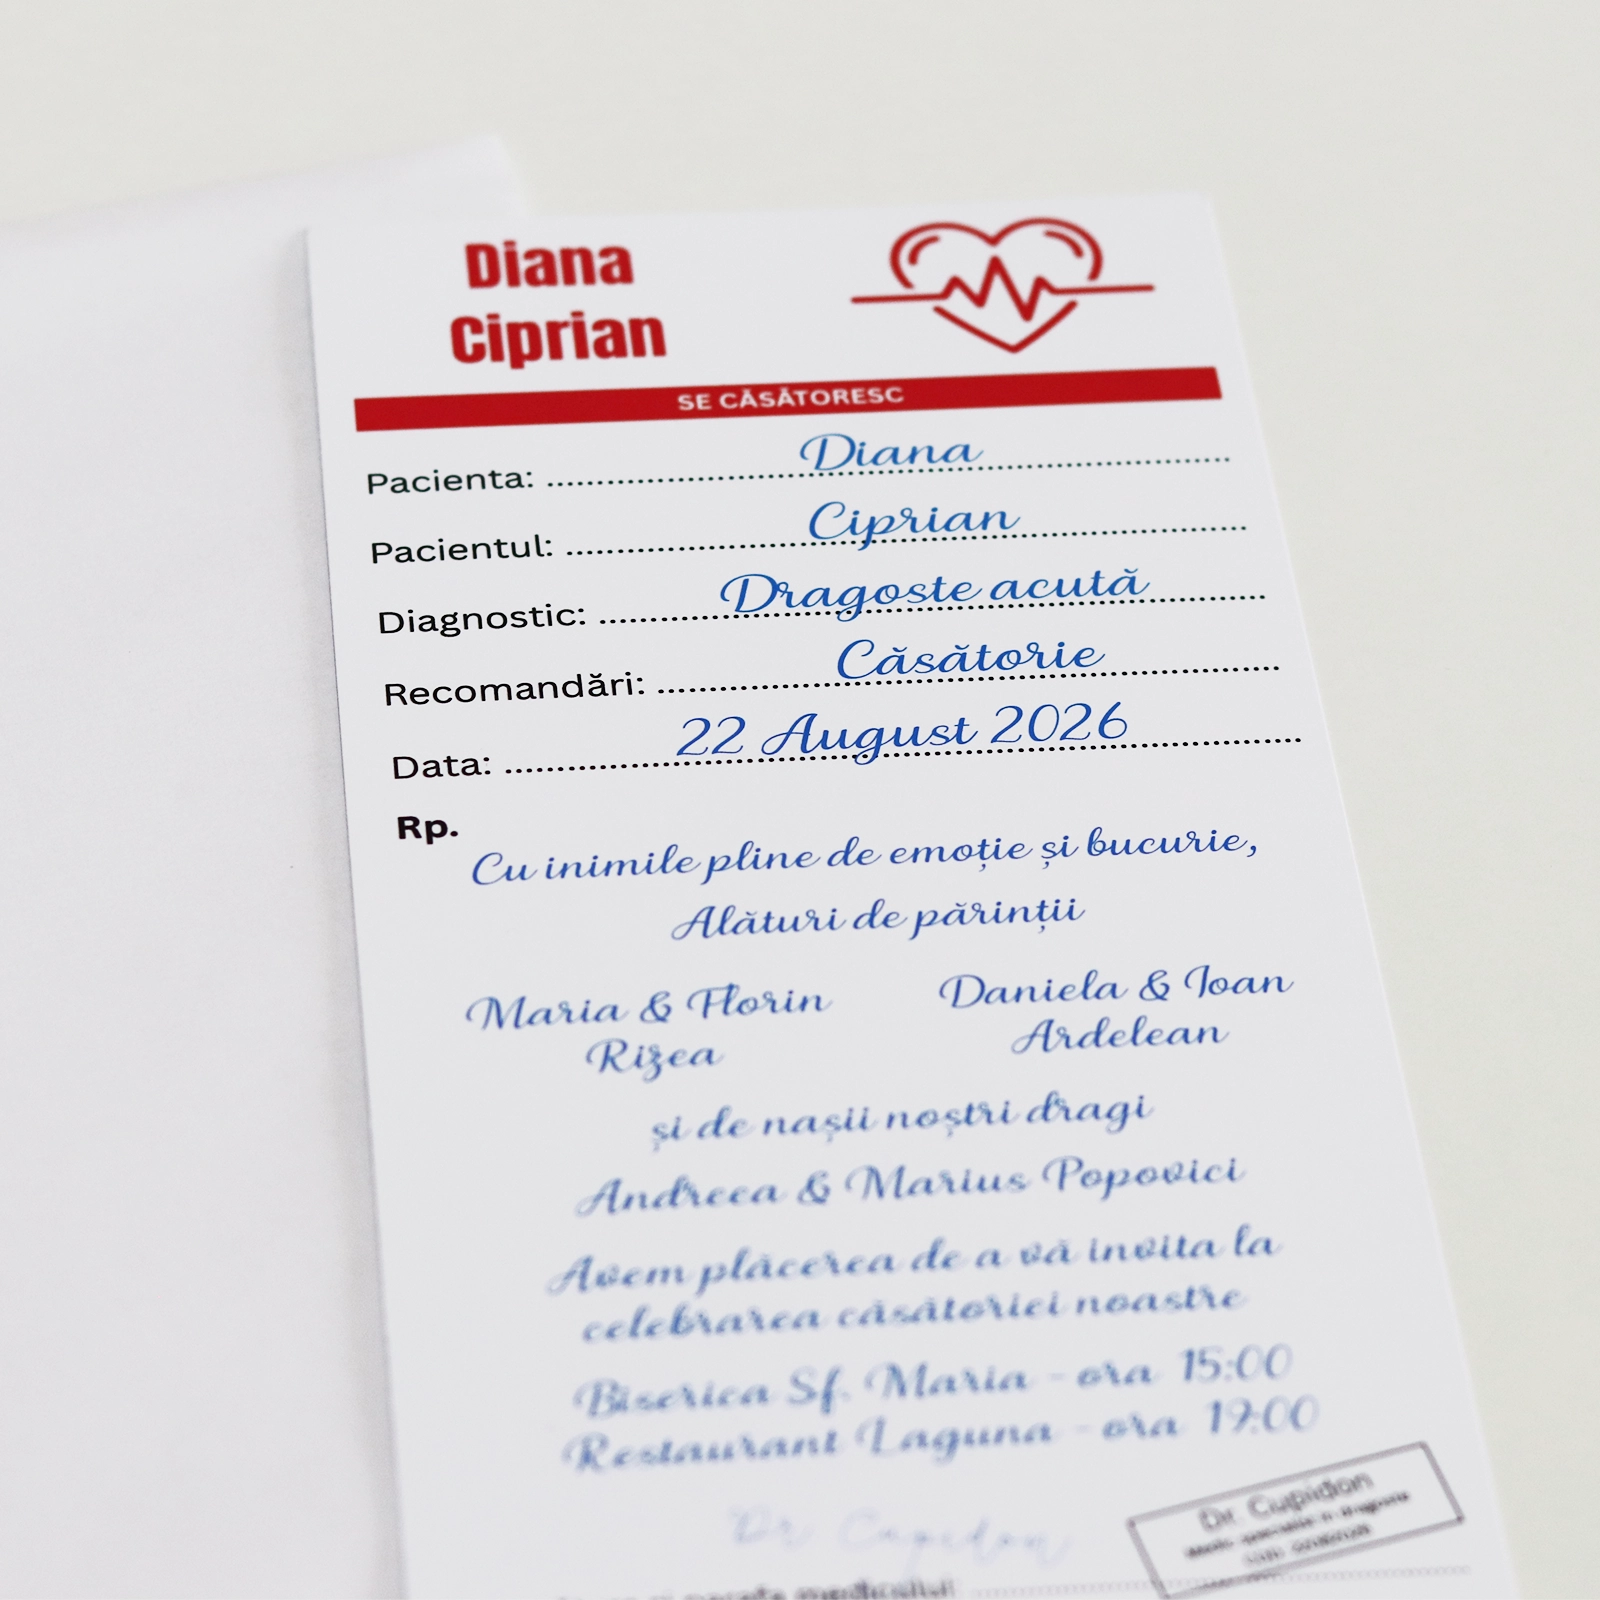 Diana
Ciprian
SE CĂSĂTORESC
Pacienta: Diana
Pacientul: Ciprian
Diagnostic: Dragoste acută
Recomandări: Căsătorie
Data: 22 August 2026
Rp.
Cu inimile pline de emoție și bucurie,
Alături de părinții
Maria & Florin Rizea
Daniela & Ioan Ardelean
și de nașii noștri dragi
Andreea & Marius Popovici
Avem plăcerea de a vă invita la
celebrarea căsătoriei noastre
Biserica Sf. Maria - ora 15:00
Restaurant Laguna - ora 19:00
Dr. Cupidon
Dr Cupidon
medicului